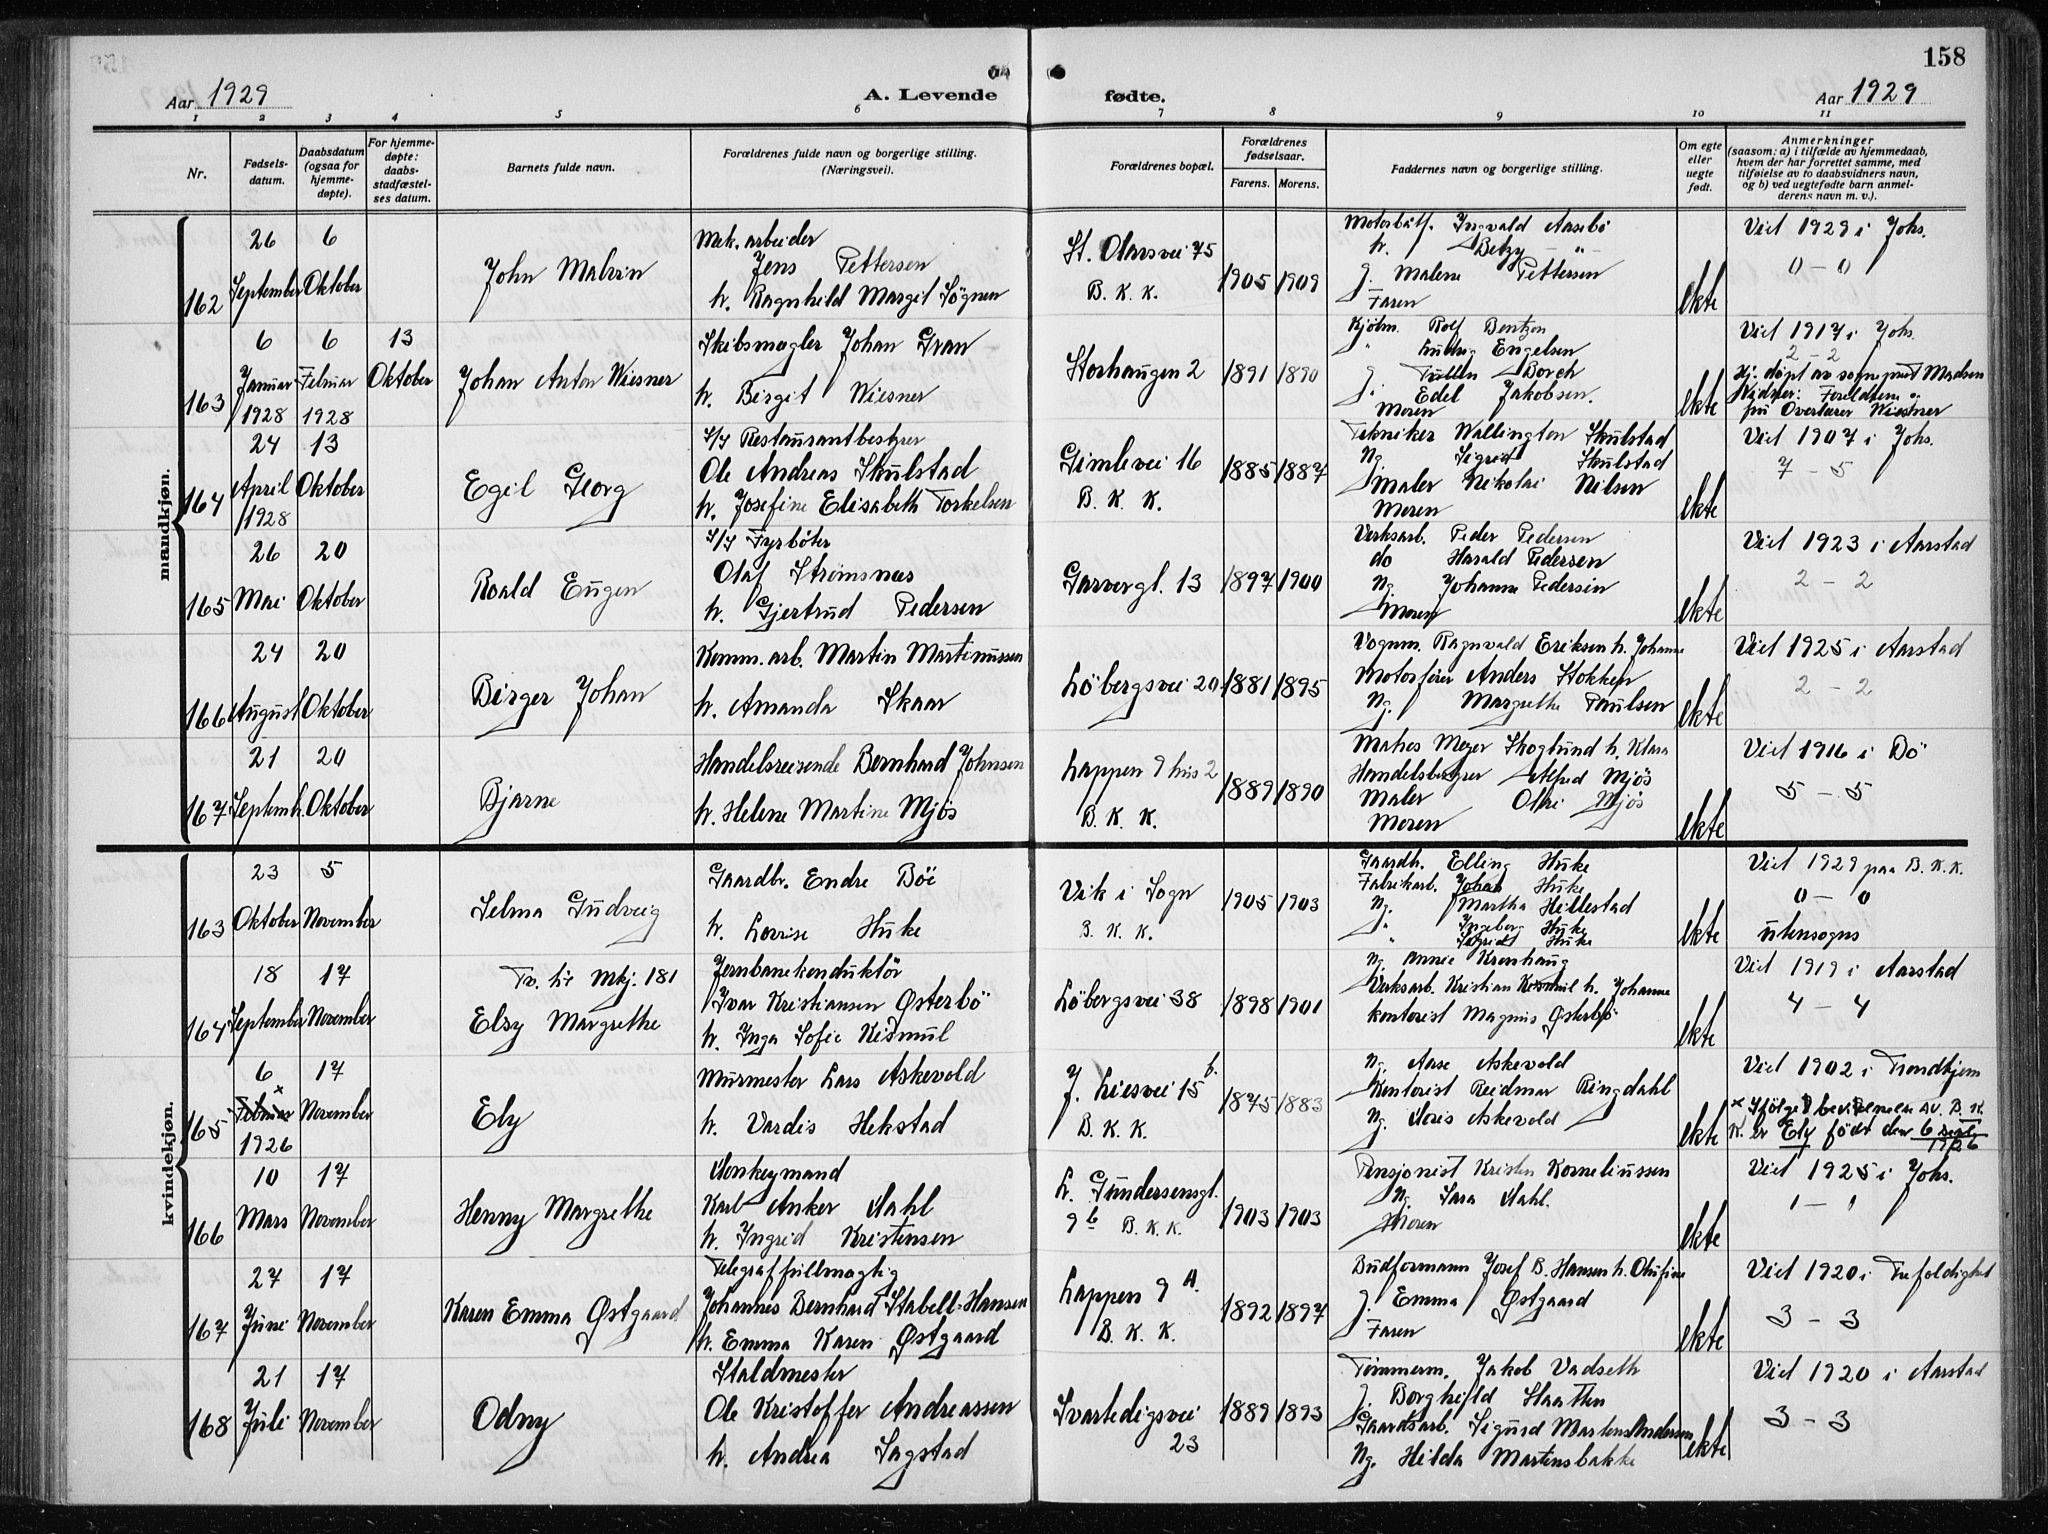 158
Aar 1929
A. Levende fødte.
Aar 1929
1 2 3 4 5 6 7 8 9 10 11
Nr.
Fødsels-
datum.
Daabsdatum
(ogsaa for
hjemme-
døpte).
For hjemme-
døpte:
daabs-
stadfæstel-
ses datum.
Barnets fulde navn.
Forældrenes fulde navn og borgerlige stilling.
(Næringsvei).
Forældrenes bopæl.
Forældrenes
fødselsaar.
Farens. Morens.
Faddernes navn og borgerlige stilling.
Om egte
eller
uegte
født.
Anmerkninger
(saasom: a) i tilfælde av hjemmedaab,
hvem der har forrettet samme, med
tilføielse av to daabsvidners navn,
og b) ved uegtefødte barn anmel-
derens navn m. v.).
mandkjøn.
162
26
September
6
Oktober
John Malvin
Mek. arbeider
Jens Pettersen
h. Ragnhild Margit Sögnen
B. K. K.
1905 1909
Motorbåtf. Ingvald Aasebö
h. Betzy - " -
J. Malene Pettersen
Faren
ekte
Viet 1929 i Johs.
0 - 0
163
6
Januar
1928
6
Februar
1928
13
Oktober
Johan Anton Wiesner
Skibsmægler Johan Gran
h. Birgit Wiesner
Storhaugen 2
1891 1890
Kjøbm. Rolf Bentzon
" Ludvig Engelsen
J. Tullen Borch
J. Edel Jakobsen.
Moren
ekte
Viet 1917 i Johs.
2 - 2
Hj. döpt av sogneprest Madsen
Vidner: Foreldrene
på Overlærer Wiesner
164
24
April
1928
13
Oktober
Egil Georg
S/S Restaurantbestyrer
Ole Andreas Skulstad
h. Josefine Elisabeth Torkelsen
Gimlevei 16
B. K. K.
1885 1887
Tekniker Wallington Skulstad
Ng. Sigrid Skulstad
Maler Nikolai Nilsen
Moren
ekte
Viet 1907 i Johs.
7 - 5
165
26
Mai
20
Oktober
Roald Eugen
S/S Fyrböter
Olaf Strömsnæs
h. Gjertrud Pedersen
Garvergt. 13
1897 1900
Verksarb. Peder Pedersen
do Harald Pedersen
Ng. Johanne Pedersen
Moren
ekte
Viet 1923 i Aarstad
2 - 2
166
24
August
20
Oktober
Birger Johan
Komm. arb. Martin Martinussen
h. Amanda Skaar
Löbergsvei 20
1881 1895
Vognm. Ragnvald Eriksen h. Johanne
Motorfører Anders Stokken
Ng. Margrethe Paulsen
ekte
Viet 1925 i Aarstad
2 - 2
167
21
Septemb.
20
Oktober
Bjarne
Handelsreisende Bernhard Johnsen
h. Helene Martine Mjös
Lappen 9 hus 2
B. K. K.
1889 1890
Matros Meyer Skoglund h. Klara
Handelsbestyrer Alfred Mjös
Maler Mjös
Moren
ekte
Viet 1916 i Bö
5 - 5
kvindekjøn.
163
23
Oktober
5
November
Selma Gudveig
Gaardbr. Endre Böe
h. Lovise Huke
Vik i Sogn
B. K. K.
1905 1903
Gaardb. Elling Huke
Fabrikarb. Johan Huke
Ng. Martha Hillestad
" Ingeborg Huke
" Sigrid Huke
ekte
Viet 1929 paa B. K. K.
0 - 0
utensogns
164
18
September
17
November
Tv. til Mkj. 181
Elsy Margrethe
Jernbanekonduktör
Ivar Kristiansen Østerbö
h. Inga Sofie Kismul
Löbergsvei 38
1898 1901
Ng. Annie Kronhaug
Verksarb. Kristian Kismul h. Johanne
kontorist Magnus Østerbö
ekte
Viet 1919 i Aarstad
4 - 4
165
6
×
Februar
1926
17
November
Ely
Murmester Lars Askevold
h. Vardis Hekstad
J. Liesvei 15 b.
B. K. K.
1875 1883
Ng. Aase Askevold
Kontorist Reidmar Ringdahl
Ng. Doris Askevold
ekte
Viet 1902 i Trondhjem
× Ifölge bevidnelse av B. K.
K. er Ely född den 6 sept
1926
166
10
Mars
17
November
Henny Margrethe
Donkeymand
Karl Anker Dahl
h. Ingrid Kristensen
L. Gundersensgt.
9 b B. K. K.
1903 1903
Pensjonist Kristen Korneliussen
Ng. Sara Dahl.
Moren
ekte
Viet 1925 i Johs.
1 - 1
167
27
Juni
17
November
Karen Emma Østgaard
Telegraffullmægtig
Johannes Bernhard Stabell-Hansen
h. Emma Karen Østgaard
Lappen 9 A.
B. K. K.
1892 1897
Budformann Josef B. Hansen h. Olufine
J. Emma Østgaard
Faren
ekte
Viet 1920 i Trefoldighet
3 - 3
168
21
Juli
17
November
Odny
Staldmester
Ole Kristoffer Andreassen
h. Andrea Sagstad
Svartedigsvei
23
1889 1893
Tömmerm. Jakob Vadseth
J. Borghild Slaatten
Gaardsarb. Sigurd Martens Andersen
Ng. Hilda Martinsbakke
ekte
Viet 1920 i Aarstad
3 - 3